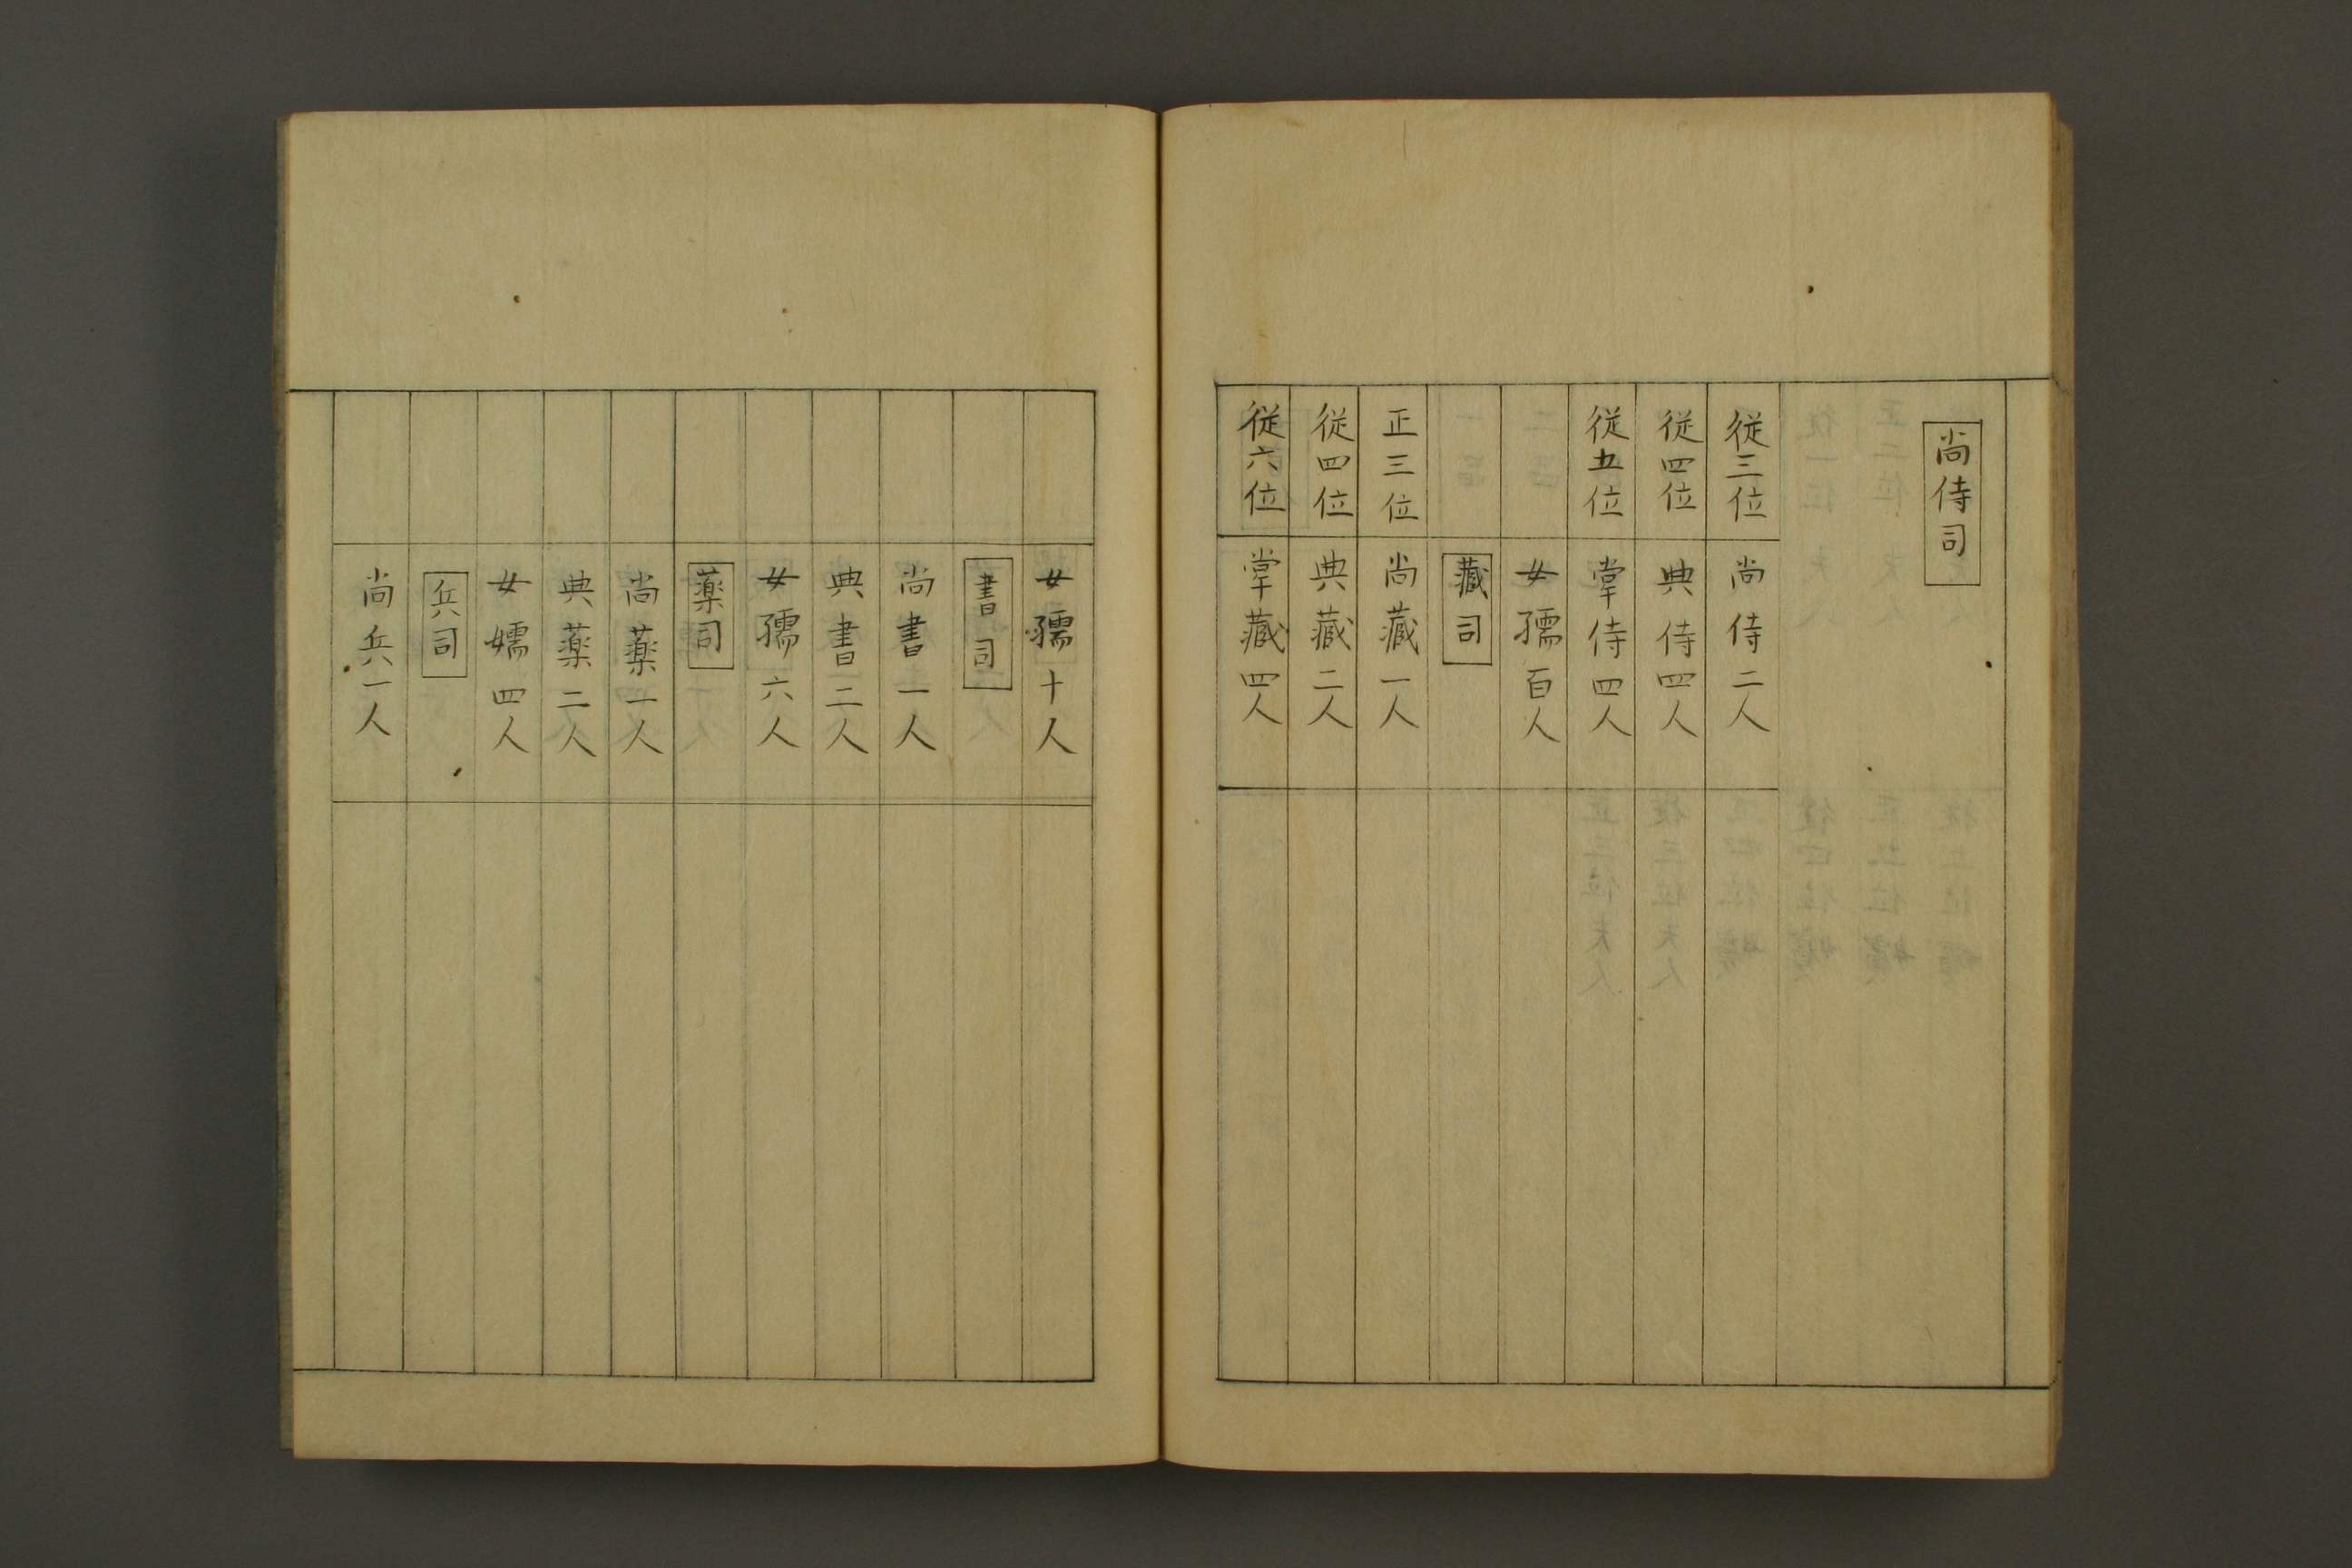 尚侍司
従三位 尚侍二人
従四位 典侍四人
従五位 掌侍四人
女孺百人
藏司
正三位 尚藏一人
従四位 典藏二人
従六位 掌藏四人
女孺十人
書司
尚書一人
典書二人
女孺六人
薬司
尚薬一人
典薬二人
女嬬四人
兵司
尚兵一人